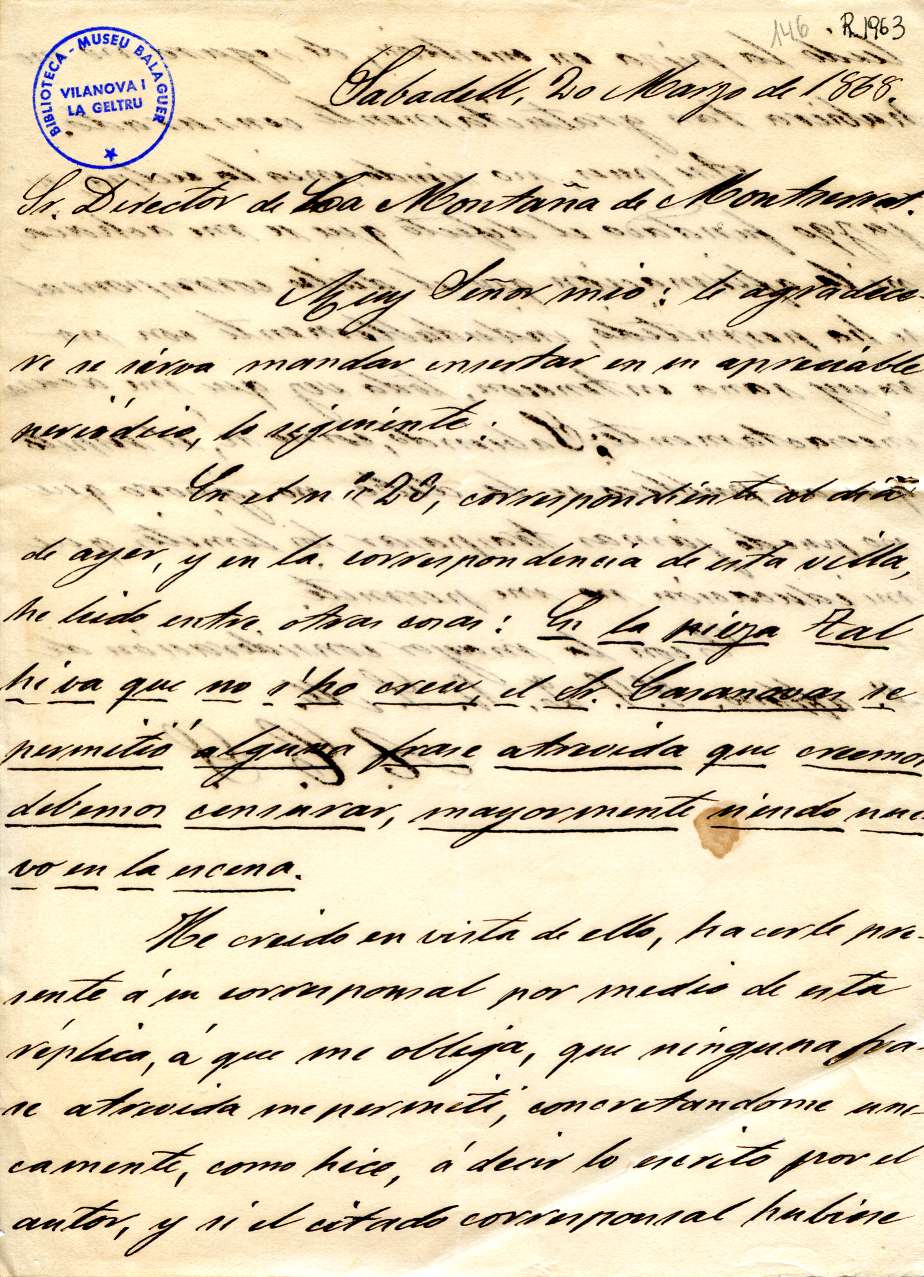 146 . R. 1963
BIBLIOTECA - MUSEU BALAGUER
VILANOVA I
LA GELTRU
Sabadell, 20 Marzo de 1868
Sr. Director de La Montaña de Montserrat.
Muy Señor mio: le agradece
ré se sirva mandar insertar en su apreciable
periódcio, lo siguiente:
En el nº 23, correspondiente al dia
de ayer, y en la correspondencia de esta villa,
he leido entre otras cosas: En la pieza Tal
hi va que no s'ho creu, el Sr. Casanovas se
permitió alguna frase atrevida que creemos
debemos censurar, mayormente siendo nue
vo en la escena.
He creido en vista de ello, hacerle pre-
sente á su corresponsal por medio de esta
réplica, á que me obliga, que ninguna fra-
se atrevida me permití, concretandome uni-
camente, como hice, á decir lo escrito por el
autor, y si el citado corresponsal hubiese